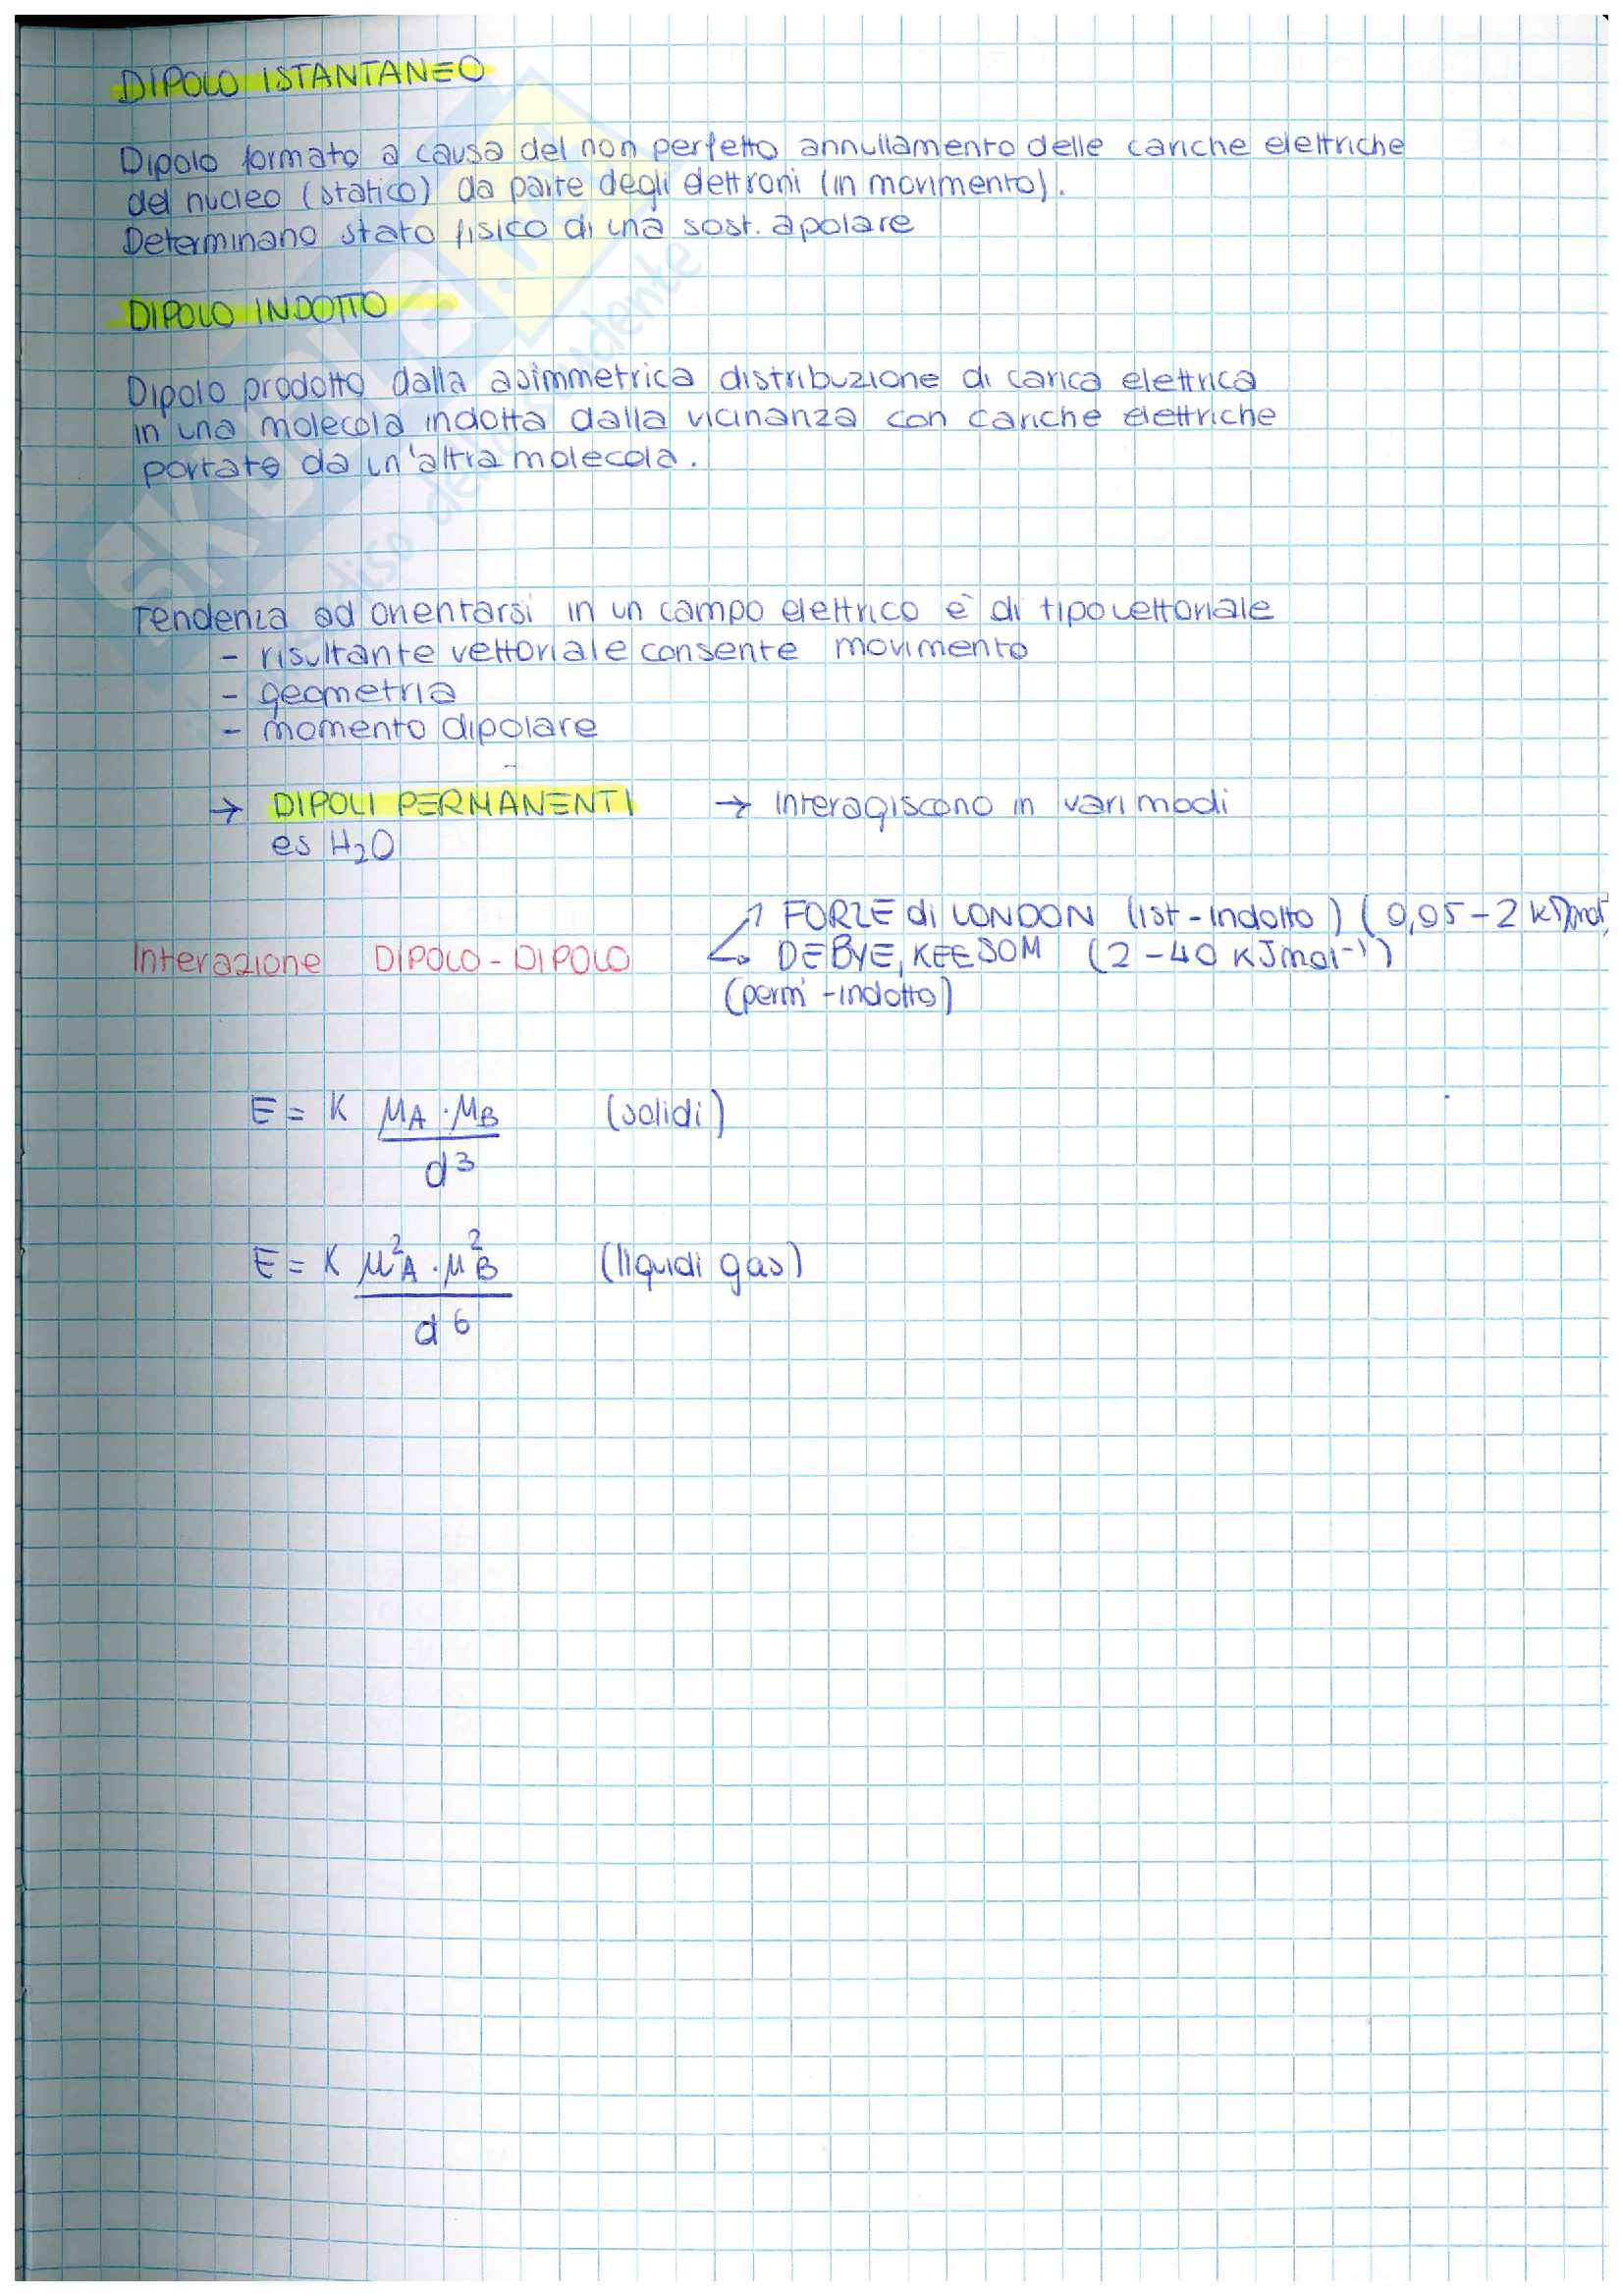 DIPOLO ISTANTANEO
Dipolo formato a causa del non perfetto annullamento delle cariche elettriche
del nucleo (statico) da parte degli elettroni (in movimento).
Determinano stato fisico di una sost. apolare
DIPOLO INDOTTO
Dipolo prodotto dalla asimmetrica distribuzione di carica elettrica
in una molecola indotta dalla vicinanza con cariche elettriche
portate da un'altra molecola.
Tendenza ad orientarsi in un campo elettrico è di tipo vettoriale
- risultante vettoriale consente movimento
- geometria
- momento dipolare
→ DIPOLI PERMANENTI → interagiscono in vari modi
es H₂O
FORZE di LONDON (ist-indotto) (0,05-2 kJmol
Interazione DIPOLO-DIPOLO DEBYE, KEESOM (2-40 KJmol⁻¹)
(perm-indotto)
E = K μA · μB / d³ (solidi)
E = K μ²A · μ²B / d⁶ (liquidi gas)